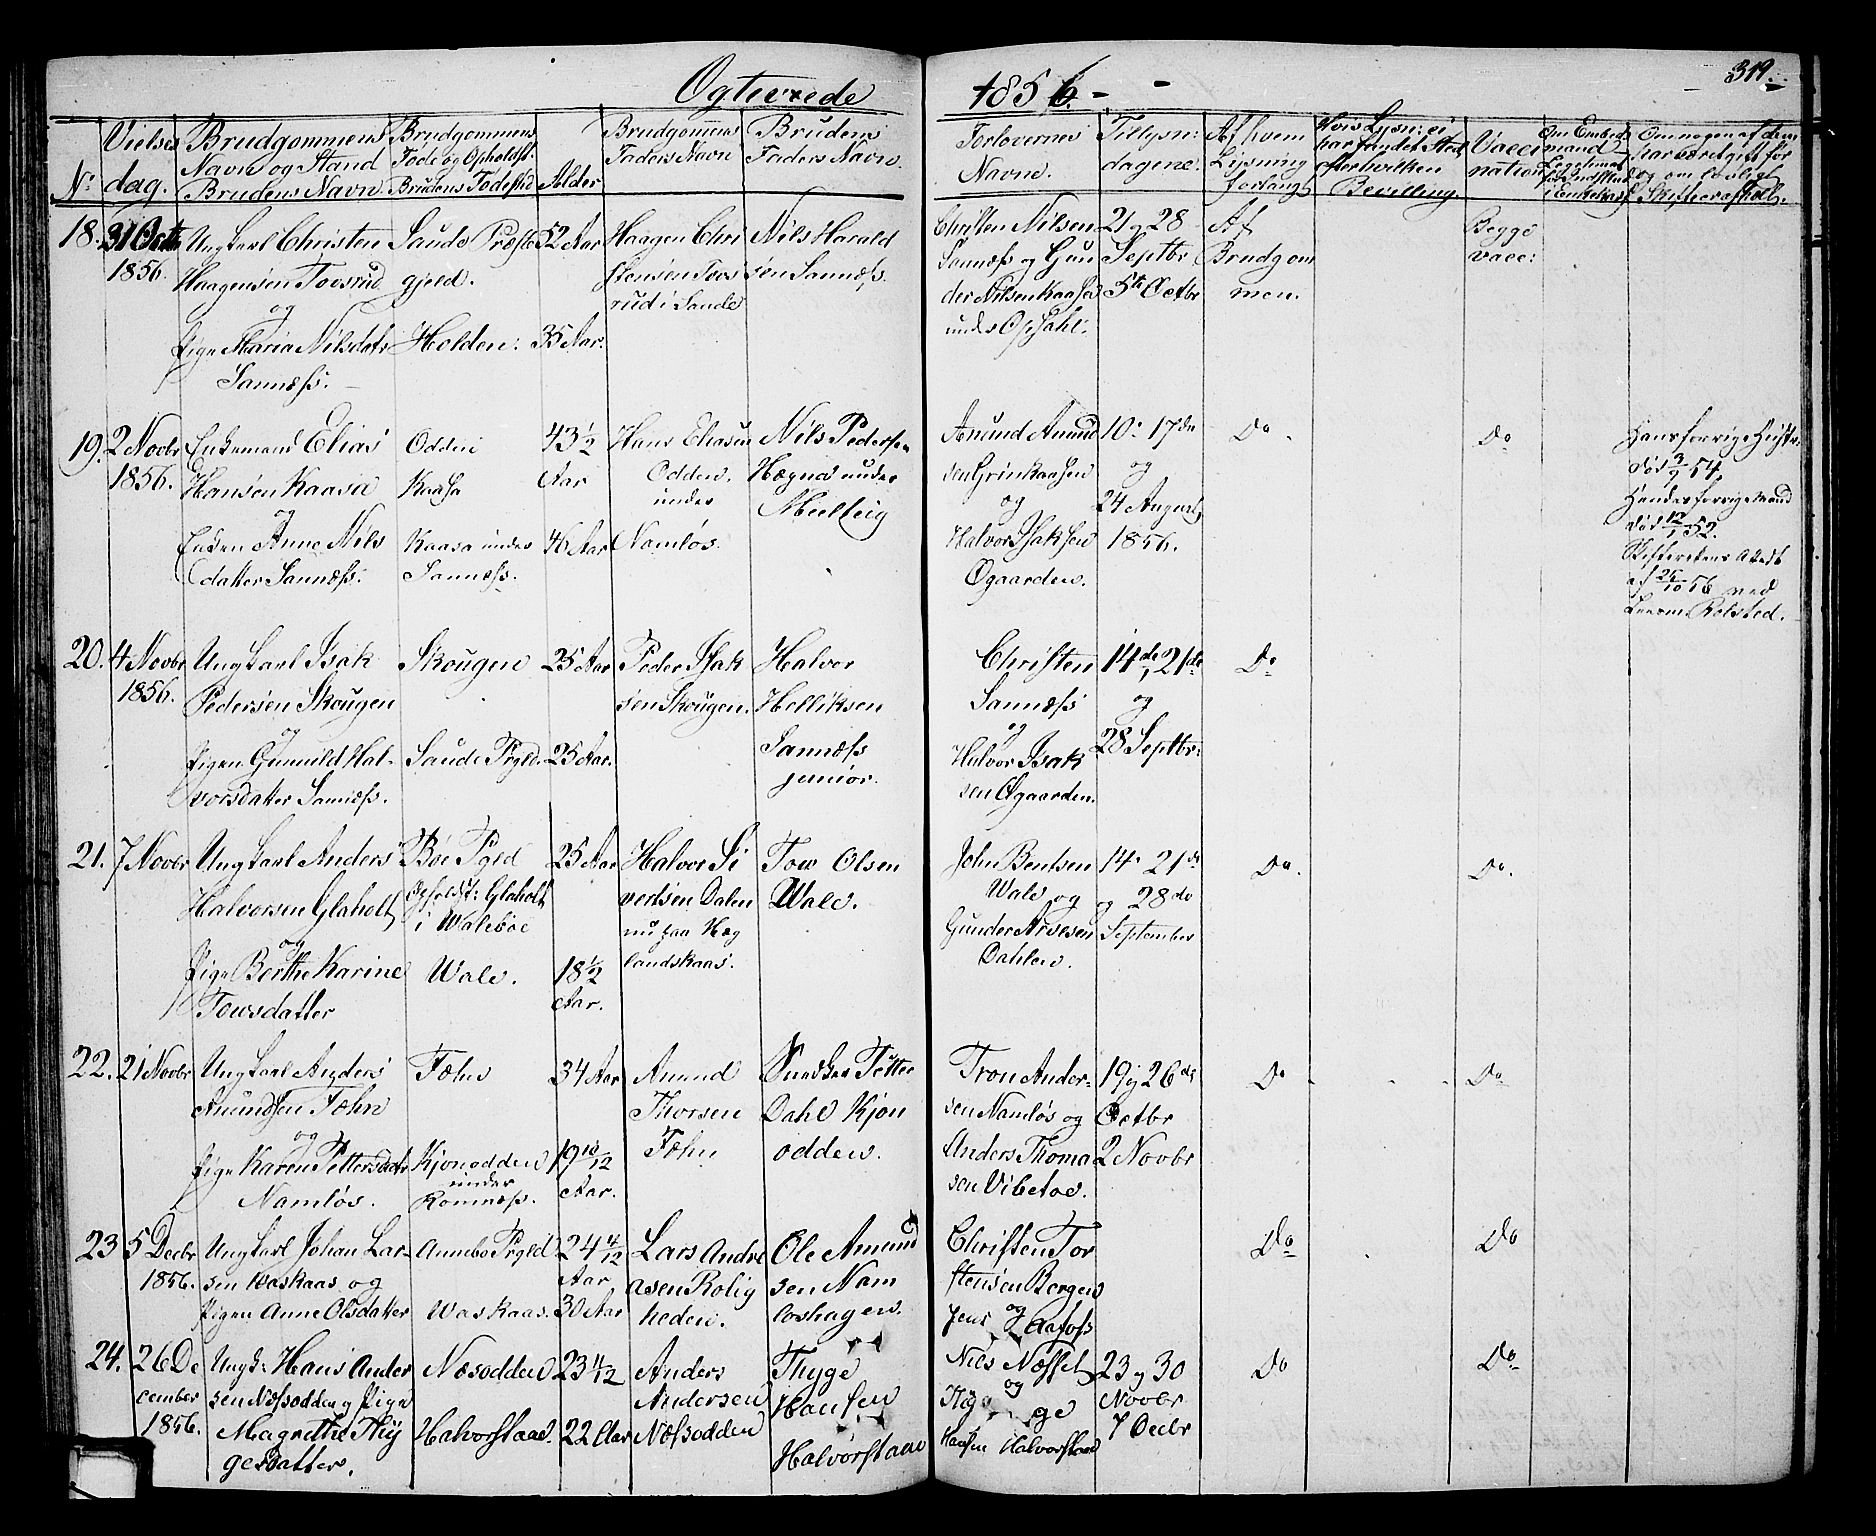 Ogteviede 1856.
319.
No
Vielses dag.
Brudgommens Navn og Stand Brudens Navn
Brudgommens Føde og Opholdst. Brudens Fødested
Alder
Brudgommens Faders Navn
Brudens Faders Navn
Forlovernes Navne.
Tillysn: dagene.
Af hvem Lysning forlangt
Hvis Lysn: ei har fundet Sted efter hvilken Bevilling
Vacci nation
18. 31 Octb 1856.
Ungkarl Christen
Haagensen Tovsrud
og
Pige Maria Nilsdatr
Sannæss.
Saude Præste
gjeld.
Holden:
52 Aar
35 Aar:
Haagen Chri
stensen Tovs
rud i Saude
Nils Harald
sen Sannæss.
Christen Nilsen
Sannæss og Gun
der Nilsen Kaasen
under Opsahl.
21 og 28
Septbr
5te Octbr
Af
Brudgom
men.
Begge
vacc:
19. 2 Novbr 1856.
Enkemand Elias
Hansen Kaasa
og
Enken Anne Nils
datter Sannæss.
Odden
Kaasa
Kaasa under
Sannæss.
43 1/2
Aar
46 Aar
Hans Eliasen
Odden.
under
Namløs.
Nils Peders.n
Hægna under
Meelteig
Anund Anund
sen Grinikaasen
og
Halvor Isaksen
Øgaarden.
10. 17de
og
24 August
1856.
Do
Do
Hans forrige Hustr.
død 3/9 54.
Hendes forrige Mand
død 12/1 52.
Skifterettens Attest
af 25/10 56 ved
Rolsted.
20. 4 Novbr 1856.
Ungkarl Isak
Pedersen Skougen
og
Pigen Gunnild Hal-
vorsdatter Sannæss.
Skougen
Saude Pgld.
25 Aar
25 Aar.
Peder Isak
sen Skougen.
Halvor
Helliksen
Sannæss
junior.
Christen
Sannæss
og
Halvor Isak
sen Øgaarden.
14de, 21de
og
28 Septbr:
Do
21. 7 Novbr
Ungkarl Anders
Halvorsen Glaholt
og
Pige Berthe Karine
Towsdatter
Bøe Pgld
Opholdst: Glaholt
i Walebøe
Wale.
25 Aar
18 1/2
Aar.
Halvor Si
vertsen Dalen
nu paa Hæg
landskaas.
Tow Olsen
Wale.
John Bentsen
Wale og
Gunder Arvesen
Dahlen.
14. 21de
og 28de
September
Do.
Do.
22. 21 Novbr
Ungkarl Anders
Anundsen Fæhn
og
Pige Karen Pettersdatr
Namløs.
Fæhn
Kjonodden
under
Romnæss.
34 Aar
19 10/12
Aar.
Anund
Thorsen
Fæhn
Snedker Petter
Dahl Kjon
odden.
Tron Ander-
sen Namløs og
Anders Thoma
sen Vibetoe.
19 og 26de
Octbr
2 Novbr
Do
Do
23. 5 Decbr 1856.
Ungkarl Johan Lar-
sen Waskaas og
Pigen Anne Olsdatter
Annebo Pgld
Waskaas.
24 4/12
Aar
30 Aar
Lars Andre
asen Rolig
heden.
Ole Amund
sen Nam
loshagen.
Christen Tor
stensen Bergen
og
Jens Aafoss
Do
Do
24. 26 De
cember
1856.
Ungk: Hans Ander
sen Næssodden og Pige
Magrethe Thy
gesdatter.
Næsodden
Halvorstaae.
23 4/12
22 Aar
Anders
Andersen
Næssodden
Thyge
Hansen
Halvorstaae
Nils Næsset
og
Hansen Halvorstaae
23 og 30
Novbr
7 Decbr
Do
Do